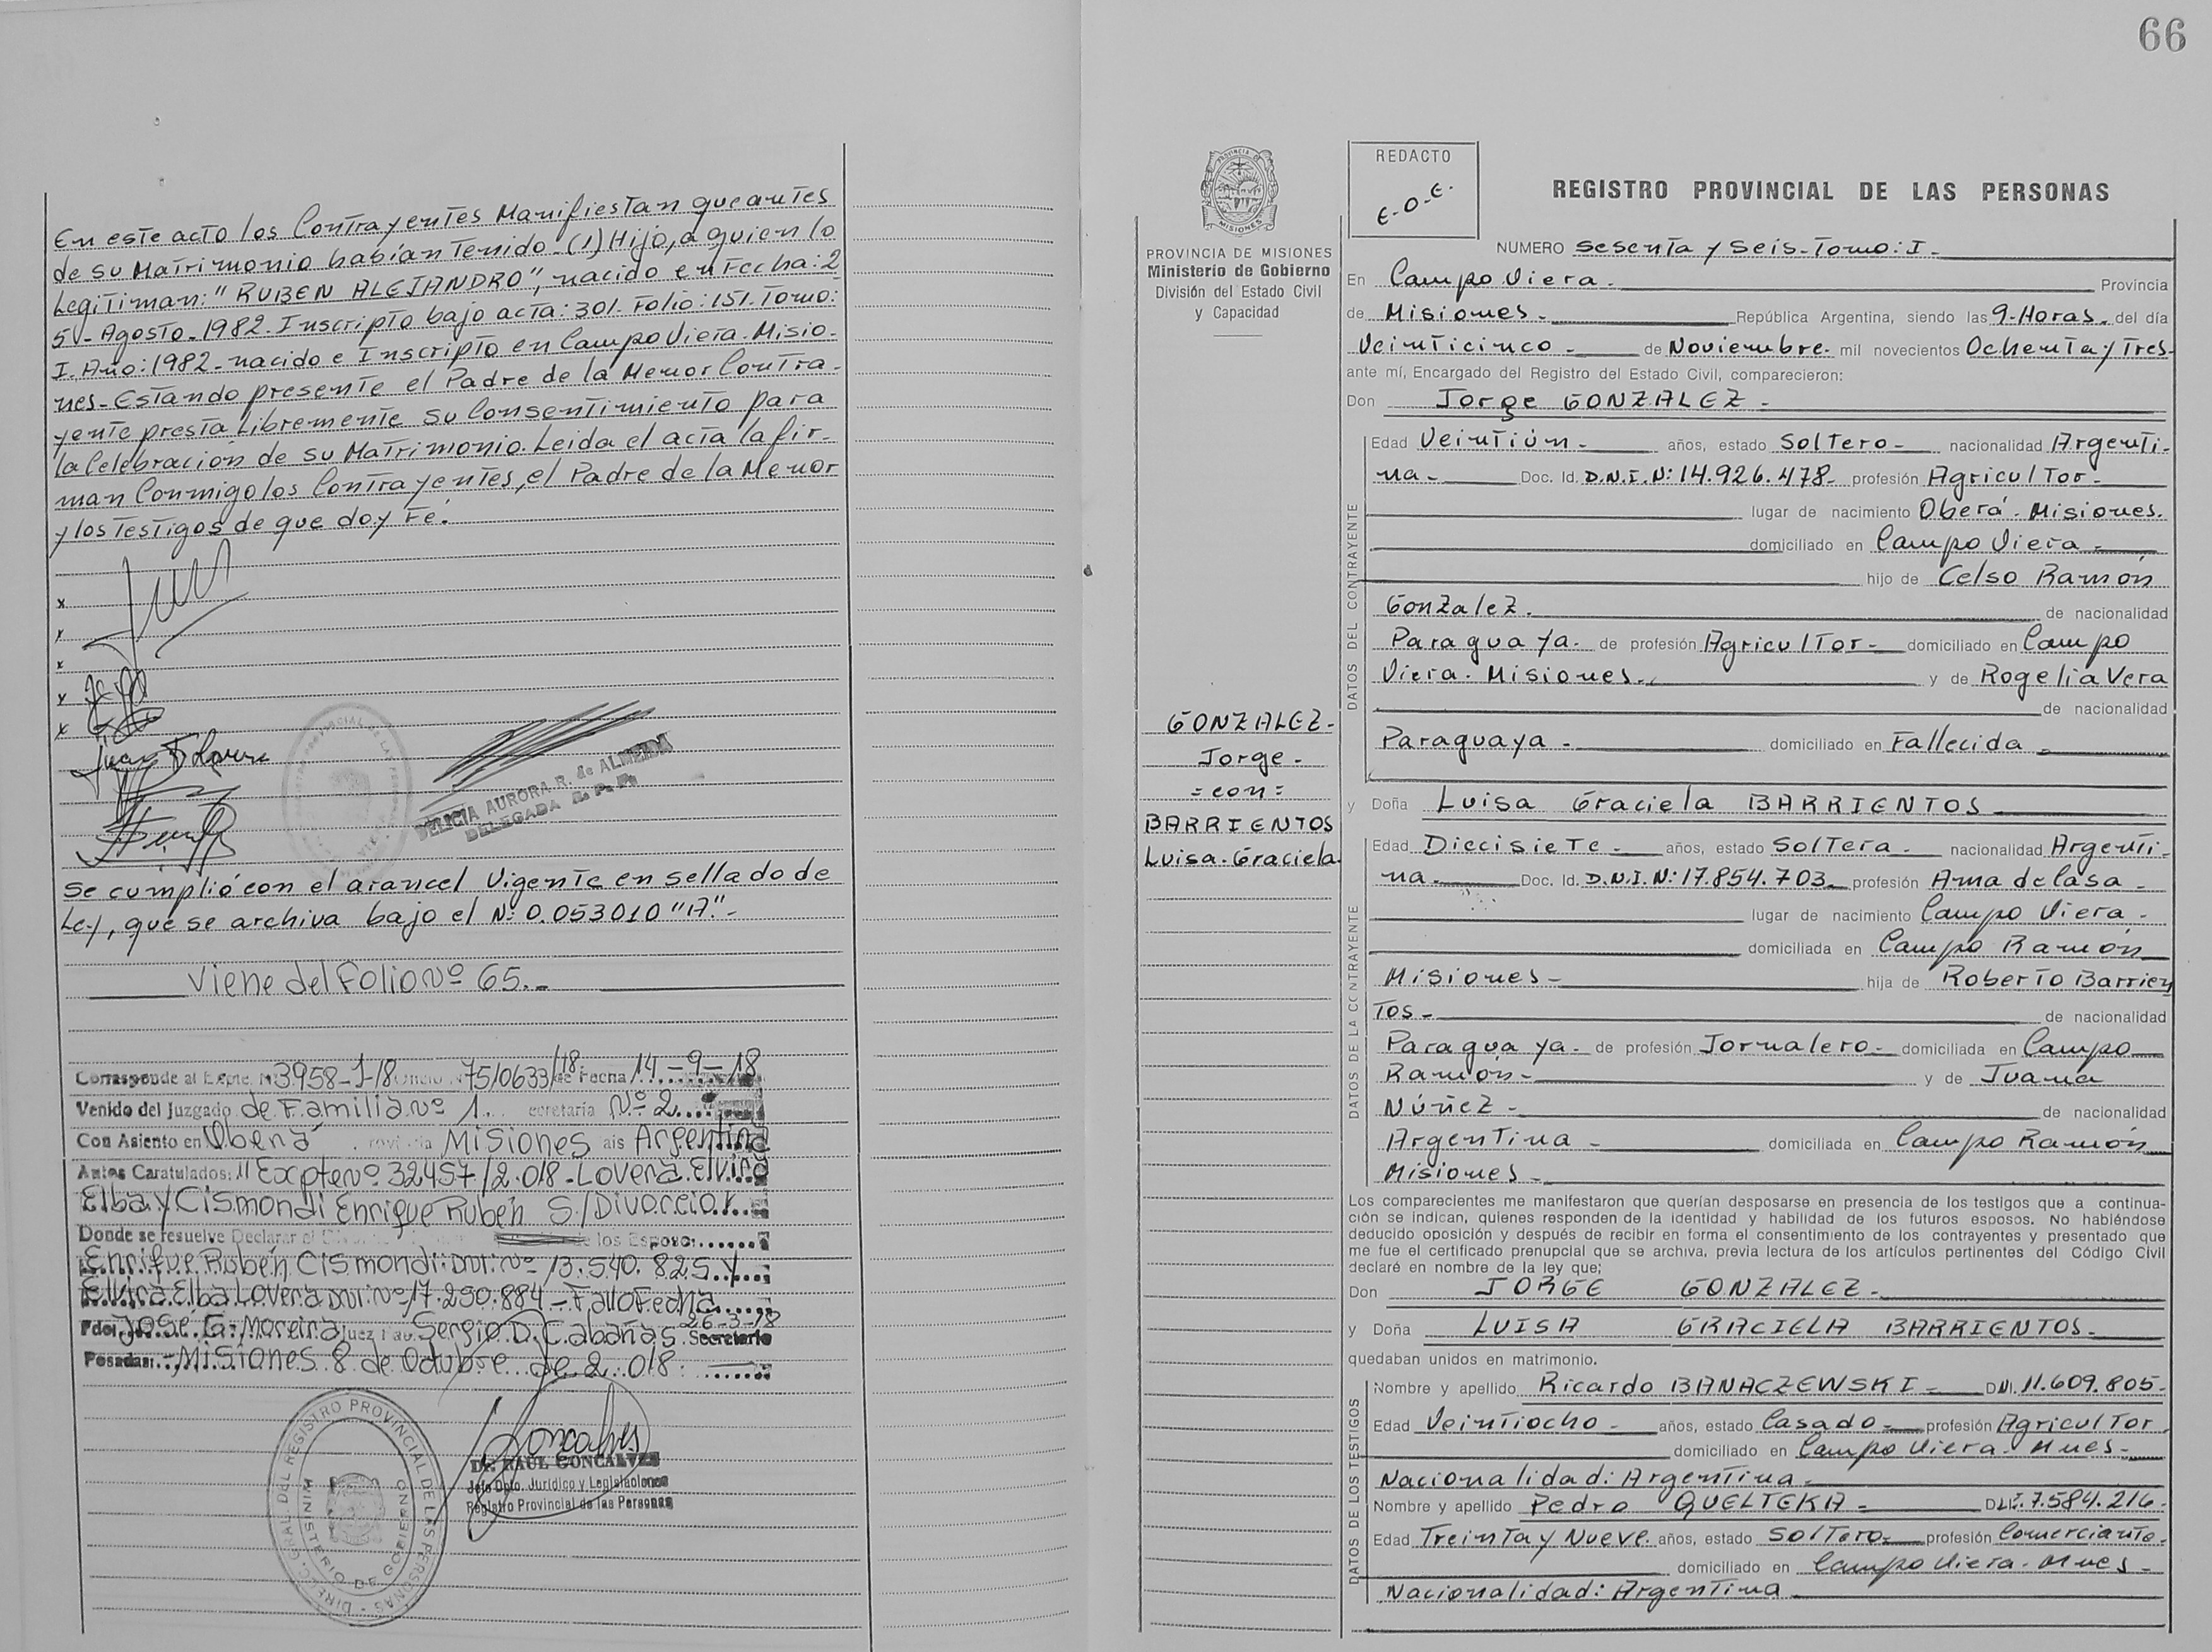 En este acto los Contrayentes Manifiestan que antes
de su Matrimonio habían Tenido (1) Hijo, a quien lo
Legitiman: "RUBEN ALEJANDRO", nacido en Fecha: 2
5- Agosto-1982. Inscripto bajo acta: 301. Folio: 151. Tomo:
I. Año: 1982- nacido e Inscripto en Campo Viera. Misio-
nes- Estando presente el Padre de la Menor Contra-
yente presta Libremente su Consentimiento para
la Celebración de su Matrimonio. Leida el acta la fir-
man Conmigo los Contrayentes, el Padre de la Menor
y los Testigos de que doy Fé.
DELICIA AURORA R. de ALMEIDA
DELEGADA R. P. P.
Se cumplió con el arancel Vigente en sellado de
Ley, que se archiva bajo el Nº 0.053010 "A".-
Viene del Folio Nº 65.-
Corresponde al Expte. N 3958-J-18 Oficio N 7510633/18 de Fecha 14-9-18
Venido del Juzgado de Familia nº 1. ecretaría Nº 2
Con Asiento en Oberá rovincia Misiones ais Argentina
Autos Caratulados: "Expte nº 32457/2.018-Lovera Elvira
Elba y Cismondi Enrique Rubén S/Divorcio".
Donde se resuelve Declarar el de los Esposo:
Enrique Rubén Cismondi: DNI: Nº 13.540.825 y
Elvira Elba Lovera DNI Nº 17.290.884-Fallo Fecha
26-3-18
Fdo: Jose G. Moreira Juez Sergio D. Cabañas Secretario
Posadas: Misiones 8 de Octubre de 2.018
Dr. RAUL GONCALVES
Jefe Dpto. Jurídico y Legislaciones
Registro Provincial de las Personas
DIRECC. GRAL DEL REGISTRO PROVINCIAL DE LAS PERSONAS
MINISTERIO DE GOBIERNO
66
PROVINCIA DE MISIONES
PROVINCIA DE MISIONES
Ministerio de Gobierno
División del Estado Civil
y Capacidad
GONZALEZ-
Jorge-
=con=
BARRIENTOS
Luisa-Graciela.
REDACTO
E-O-E.
REGISTRO PROVINCIAL DE LAS PERSONAS
NUMERO Sesenta y Seis-Tomo: I.-
En Campo Viera. Provincia
de Misiones. República Argentina, siendo las 9-Horas. del día
Veinticinco- de Noviembre- mil novecientos Ochenta y Tres-
ante mí, Encargado del Registro del Estado Civil, comparecieron:
Don Jorge GONZALEZ-
DATOS DEL CONTRAYENTE
Edad Veintiún- años, estado Soltero- nacionalidad Argenti-
na- Doc. Id. D.N.I.N: 14.926.478- profesión Agricultor-
lugar de nacimiento Oberá- Misiones.
domiciliado en Campo Viera-
hijo de Celso Ramón
Gonzalez. de nacionalidad
Paraguaya- de profesión Agricultor- domiciliado en Campo
Viera- Misiones. y de Rogelia Vera
de nacionalidad
Paraguaya- domiciliado en Fallecida-
y Doña Luisa Graciela BARRIENTOS
DATOS DE LA CONTRAYENTE
Edad Diecisiete- años, estado Soltera- nacionalidad Argenti-
na- Doc. Id. D.N.I.N: 17.854.703- profesión Ama de Casa-
lugar de nacimiento Campo Viera-
domiciliada en Campo Ramón
Misiones- hija de Roberto Barrien
tos- de nacionalidad
Paraguaya- de profesión Jornalero- domiciliada en Campo
Ramón- y de Juana
Núñez- de nacionalidad
Argentina- domiciliada en Campo Ramón
Misiones-
Los comparecientes me manifestaron que querían desposarse en presencia de los testigos que a continua-
ción se indican, quienes responden de la identidad y habilidad de los futuros esposos. No habiéndose
deducido oposición y después de recibir en forma el consentimiento de los contrayentes y presentado que
me fue el certificado prenupcial que se archiva, previa lectura de los artículos pertinentes del Código Civil
declaré en nombre de la ley que;
Don JORGE GONZALEZ-
y Doña LUISA GRACIELA BARRIENTOS-
quedaban unidos en matrimonio.
DATOS DE LOS TESTIGOS
Nombre y apellido Ricardo BANACZEWSKI- DNI. 11.609.805-
Edad Veintiocho- años, estado Casado- profesión Agricultor
domiciliado en Campo Viera- Mnes-
Nacionalidad: Argentina-
Nombre y apellido Pedro QUELTEKA- D 7.584.216-
Edad Treinta y Nueve. años, estado Soltero- profesión Comerciante.
domiciliado en Campo Viera- Mnes-
Nacionalidad: Argentina